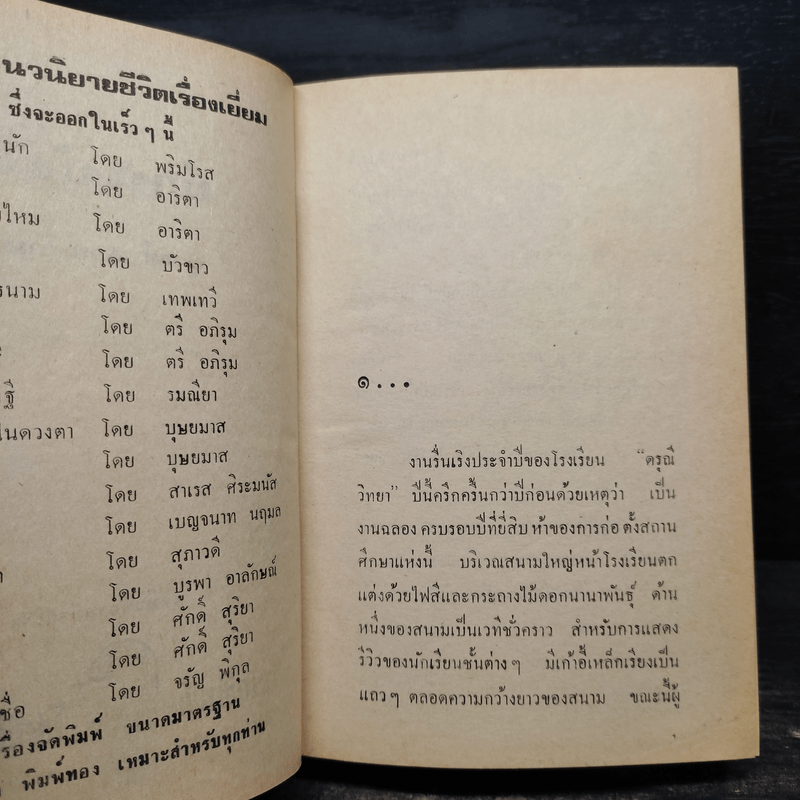 นวนิยายชีวิตเรื่องเยี่ยม
ซึ่งจะออกในเร็ว ๆ นี้
นัก โดย พริมโรส
โดย อาริตา
ไหม โดย อาริตา
โดย บัวขาว
รนาม โดย เทพเทวี
โดย ตรี อภิรุม
โดย ตรี อภิรุม
ฐี โดย รมณียา
ในดวงตา โดย บุษยมาส
โดย บุษยมาส
โดย สาเรส ศิระมนัส
โดย เบญจนาท นฤมล
โดย สุภาวดี
โดย บูรพา อาลักษณ์
โดย ศักดิ์ สุริยา
โดย ศักดิ์ สุริยา
ชื่อ โดย จรัญ พิกุล
รื่องจัดพิมพ์ ขนาดมาตรฐาน
พิมพ์ทอง เหมาะสำหรับทุกท่าน
๑...
งานรื่นเริงประจำปีของโรงเรียน “ดรุณี
วิทยา” ปีนี้ครึกครื้นกว่าปีก่อนด้วยเหตุว่า เป็น
งานฉลอง ครบรอบปีที่ยี่สิบ ห้าของการก่อ ตั้งสถาน
ศึกษาแห่งนี้ บริเวณสนามใหญ่หน้าโรงเรียนตก
แต่งด้วยไฟสีและกระถางไม้ดอกนานาพันธุ์ ด้าน
หนึ่งของสนามเป็นเวทีชั่วคราว สำหรับการแสดง
รีวิวของนักเรียนชั้นต่าง ๆ มีเก้าอี้เหล็กเรียงเป็น
แถว ๆ ตลอดความกว้างยาวของสนาม ขณะนี้ผู้